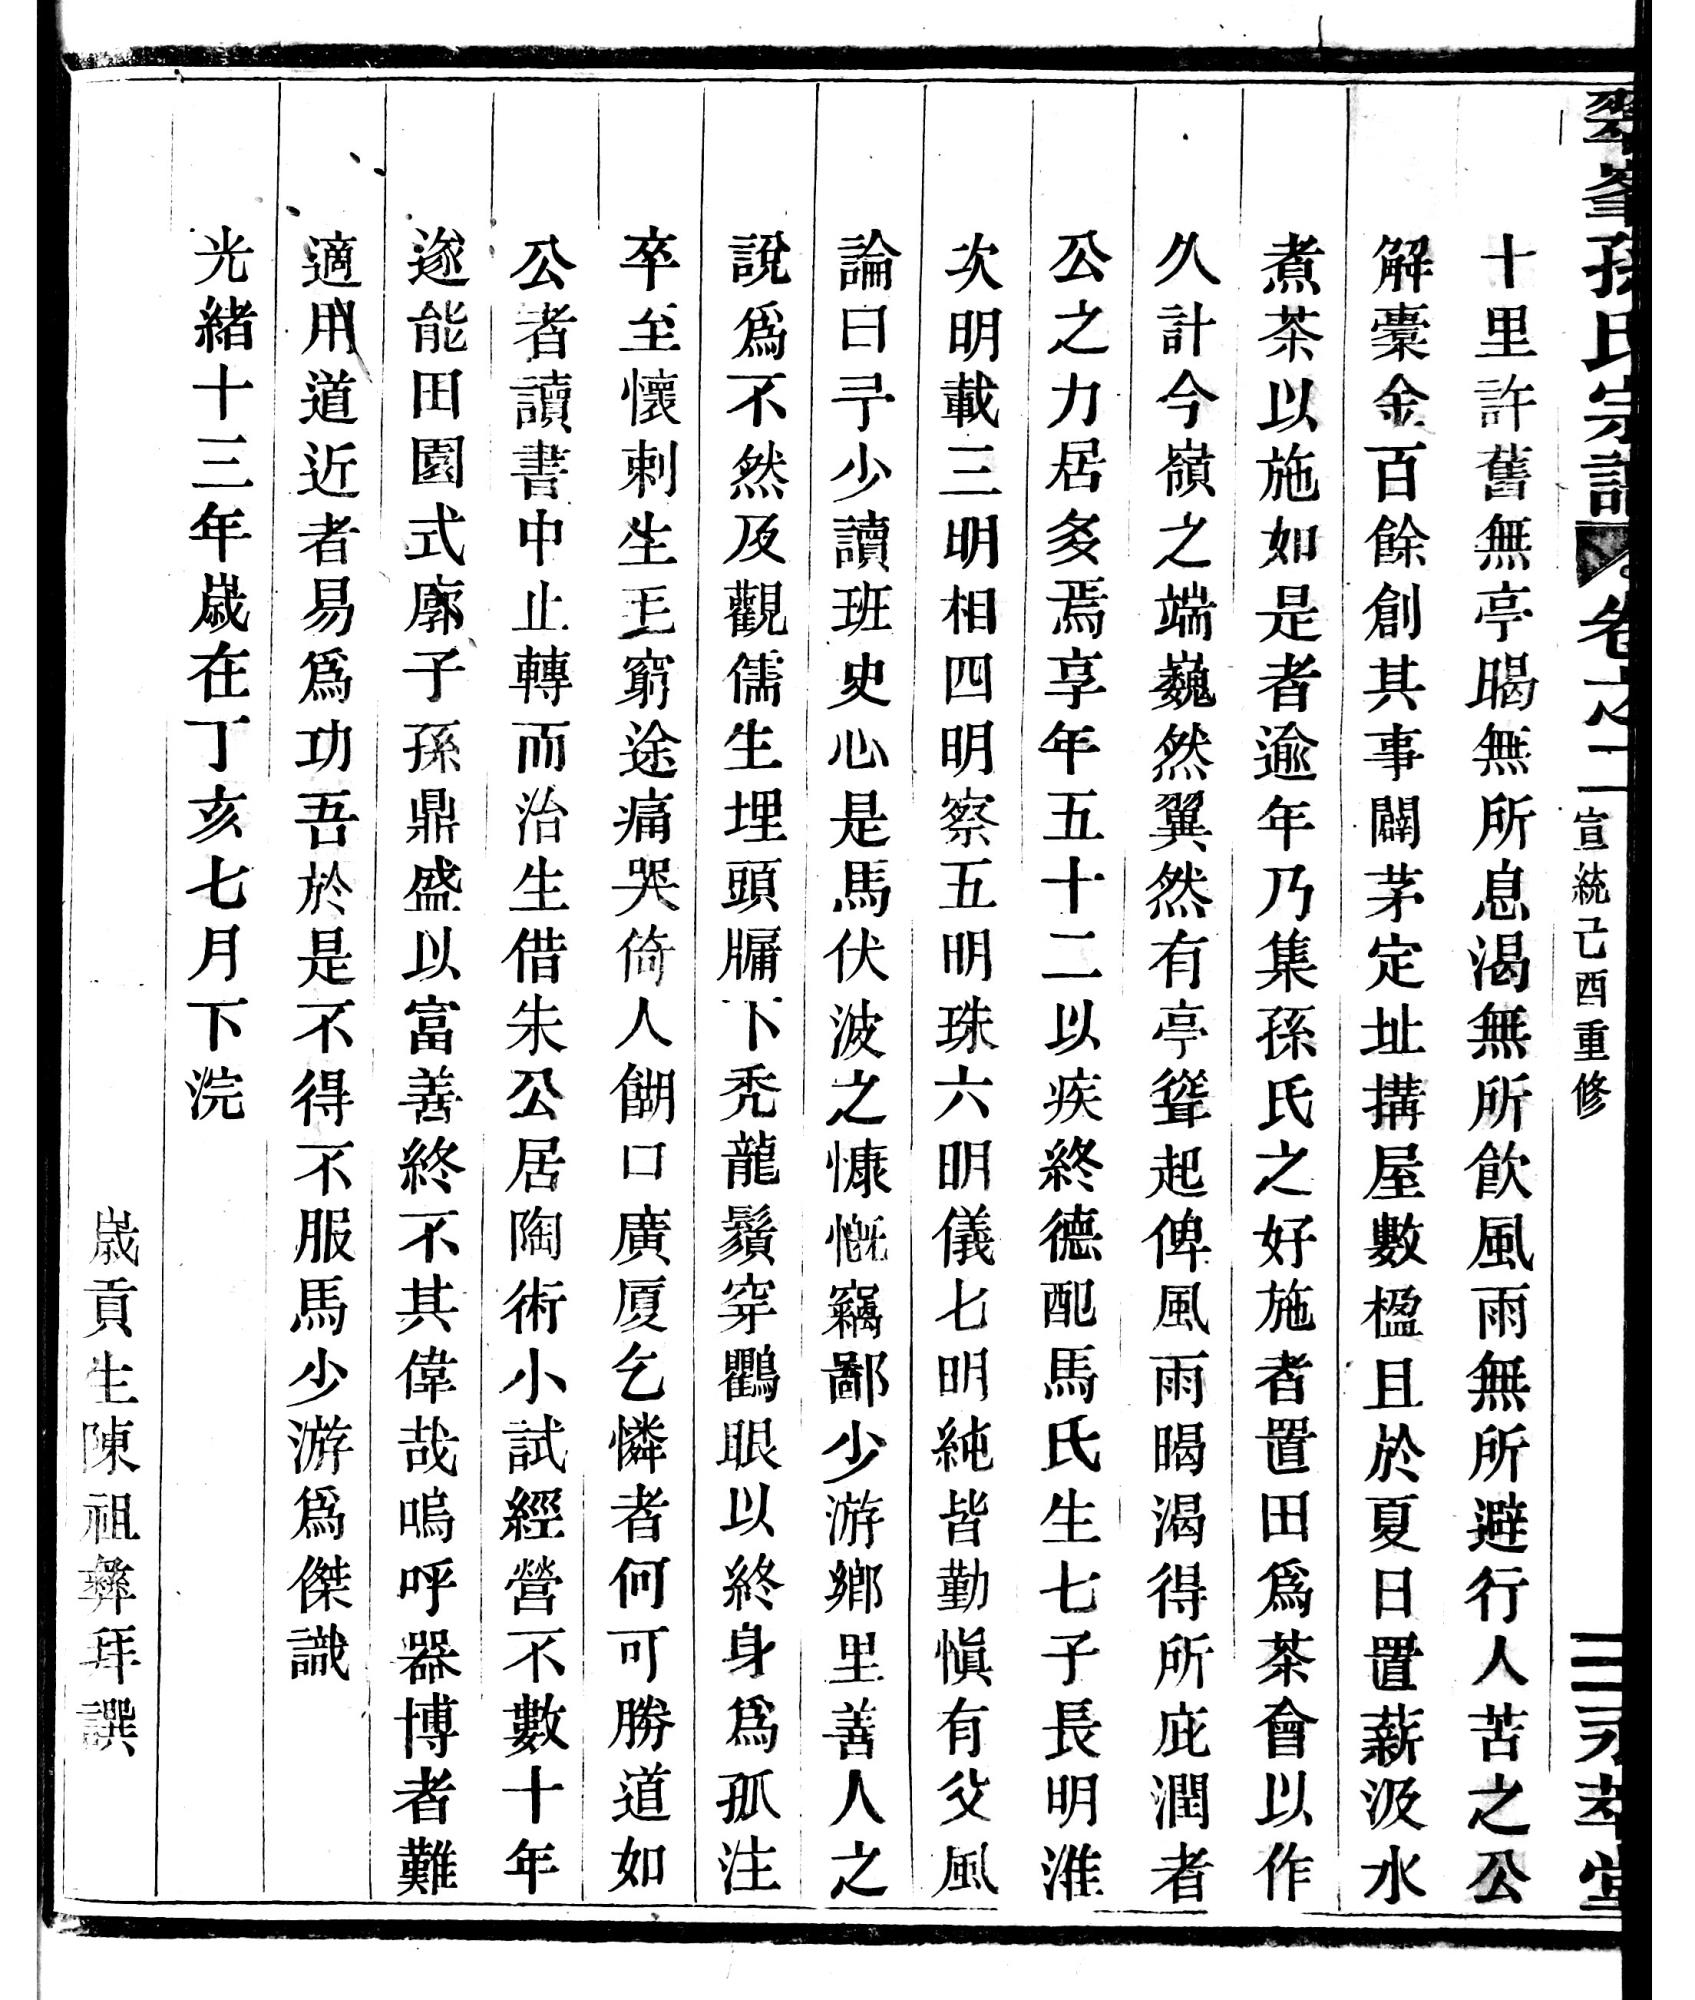 翠峯孫氏宗譜 卷之二 宣統己酉重修 三 永孝堂
十里許舊無亭暍無所息渴無所飲風雨無所避行人苦之公
解橐金百餘創其事闢茅定址搆屋數楹且於夏日置薪汲水
煮茶以施如是者逾年乃集孫氏之好施者置田爲茶會以作
久計今嶺之端巍然翼然有亭聳起俾風雨暍渴得所庇潤者
公之力居多焉享年五十二以疾終德配馬氏生七子長明淮
次明載三明相四明察五明珠六明儀七明純皆勤愼有父風
論曰予少讀班史心是馬伏波之慷慨竊鄙少游鄉里善人之
說爲不然及觀儒生埋頭牖下禿龍鬚穿鸜眼以終身爲孤注
卒至懷刺生毛窮途痛哭倚人餬口廣厦乞憐者何可勝道如
公者讀書中止轉而治生借朱公居陶術小試經營不數十年
遂能田園式廓子孫鼎盛以富善終不其偉哉嗚呼器博者難
適用道近者易爲功吾於是不得不服馬少游爲傑識
光緒十三年歲在丁亥七月下浣
歲貢生陳祖彝拜譔